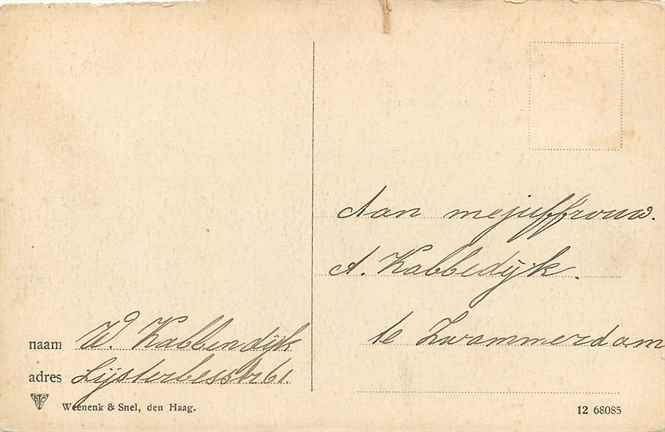 Aan mejuffrouw.
A. Kabbedijk.
te Zwammerdam
naam W. Kabbendijk
adres Lijsterbesstr 61.
Weenenk & Snel, den Haag.
12 68085